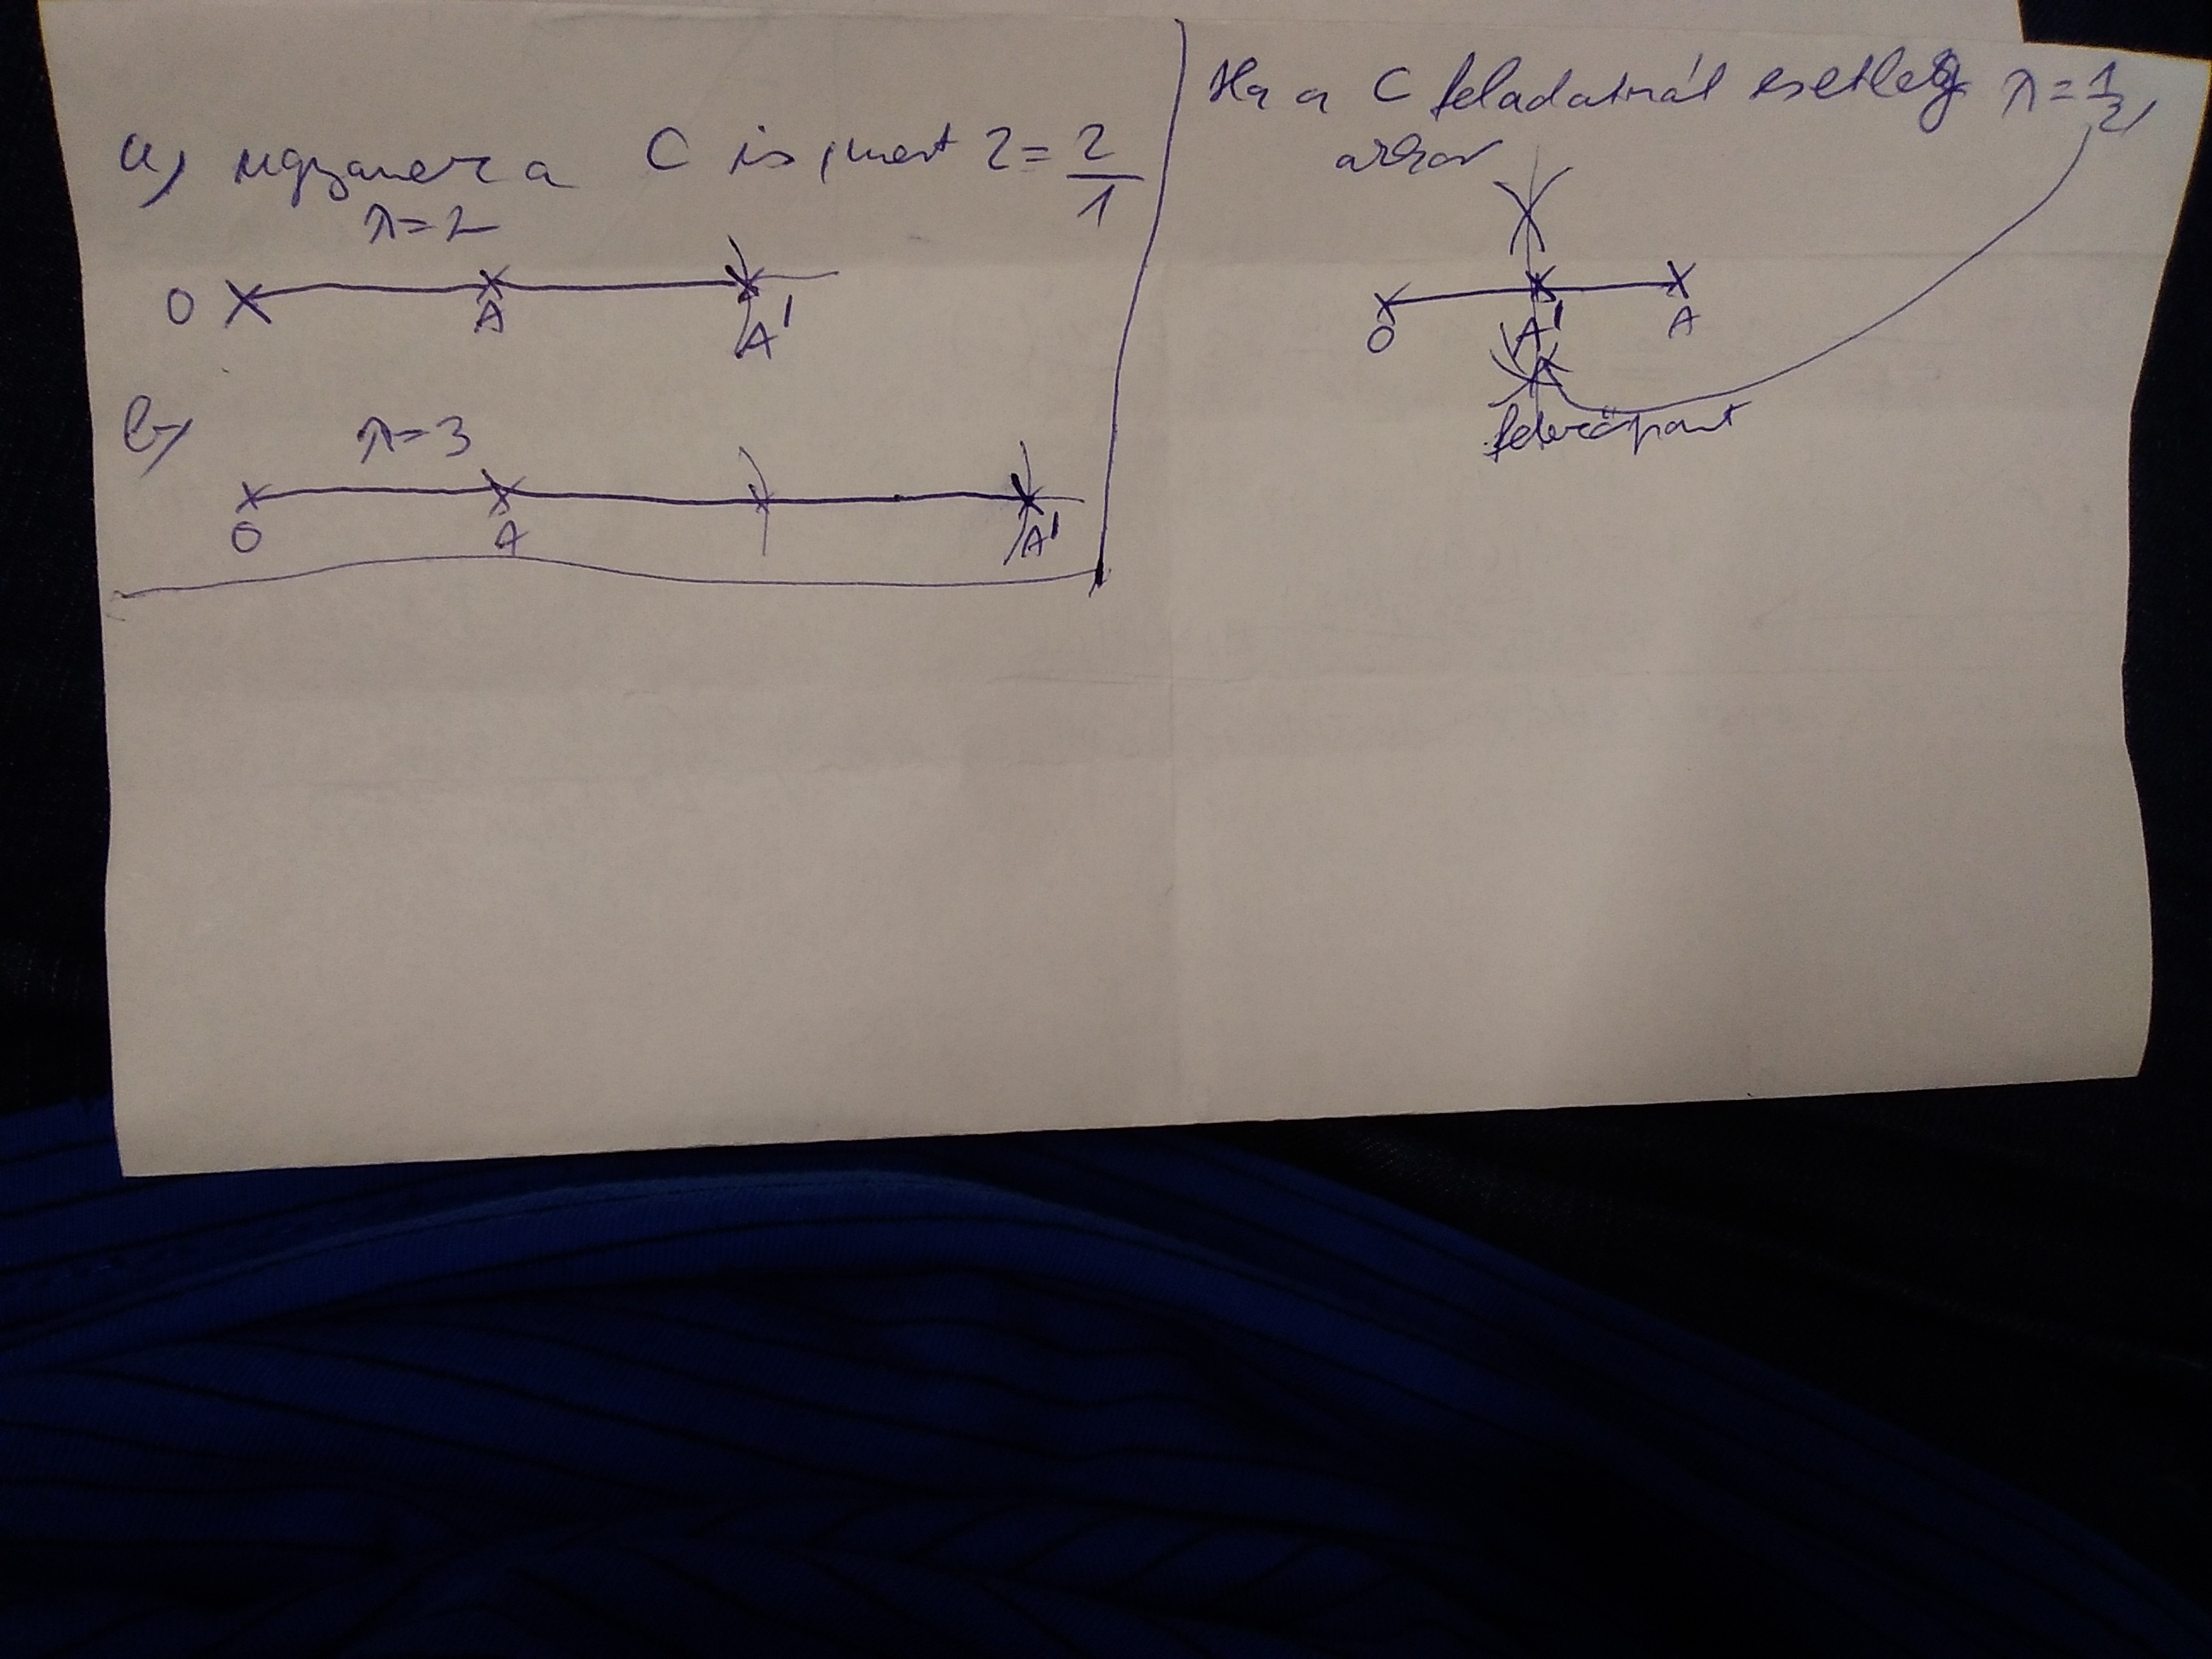 a) ugyanez a C is, mert 2 = 2/1
λ=2
O A A'
b) λ=3
O A A'
Ha a C feladatnál esetleg λ=1/2,
akkor
O A' A
felezőpont